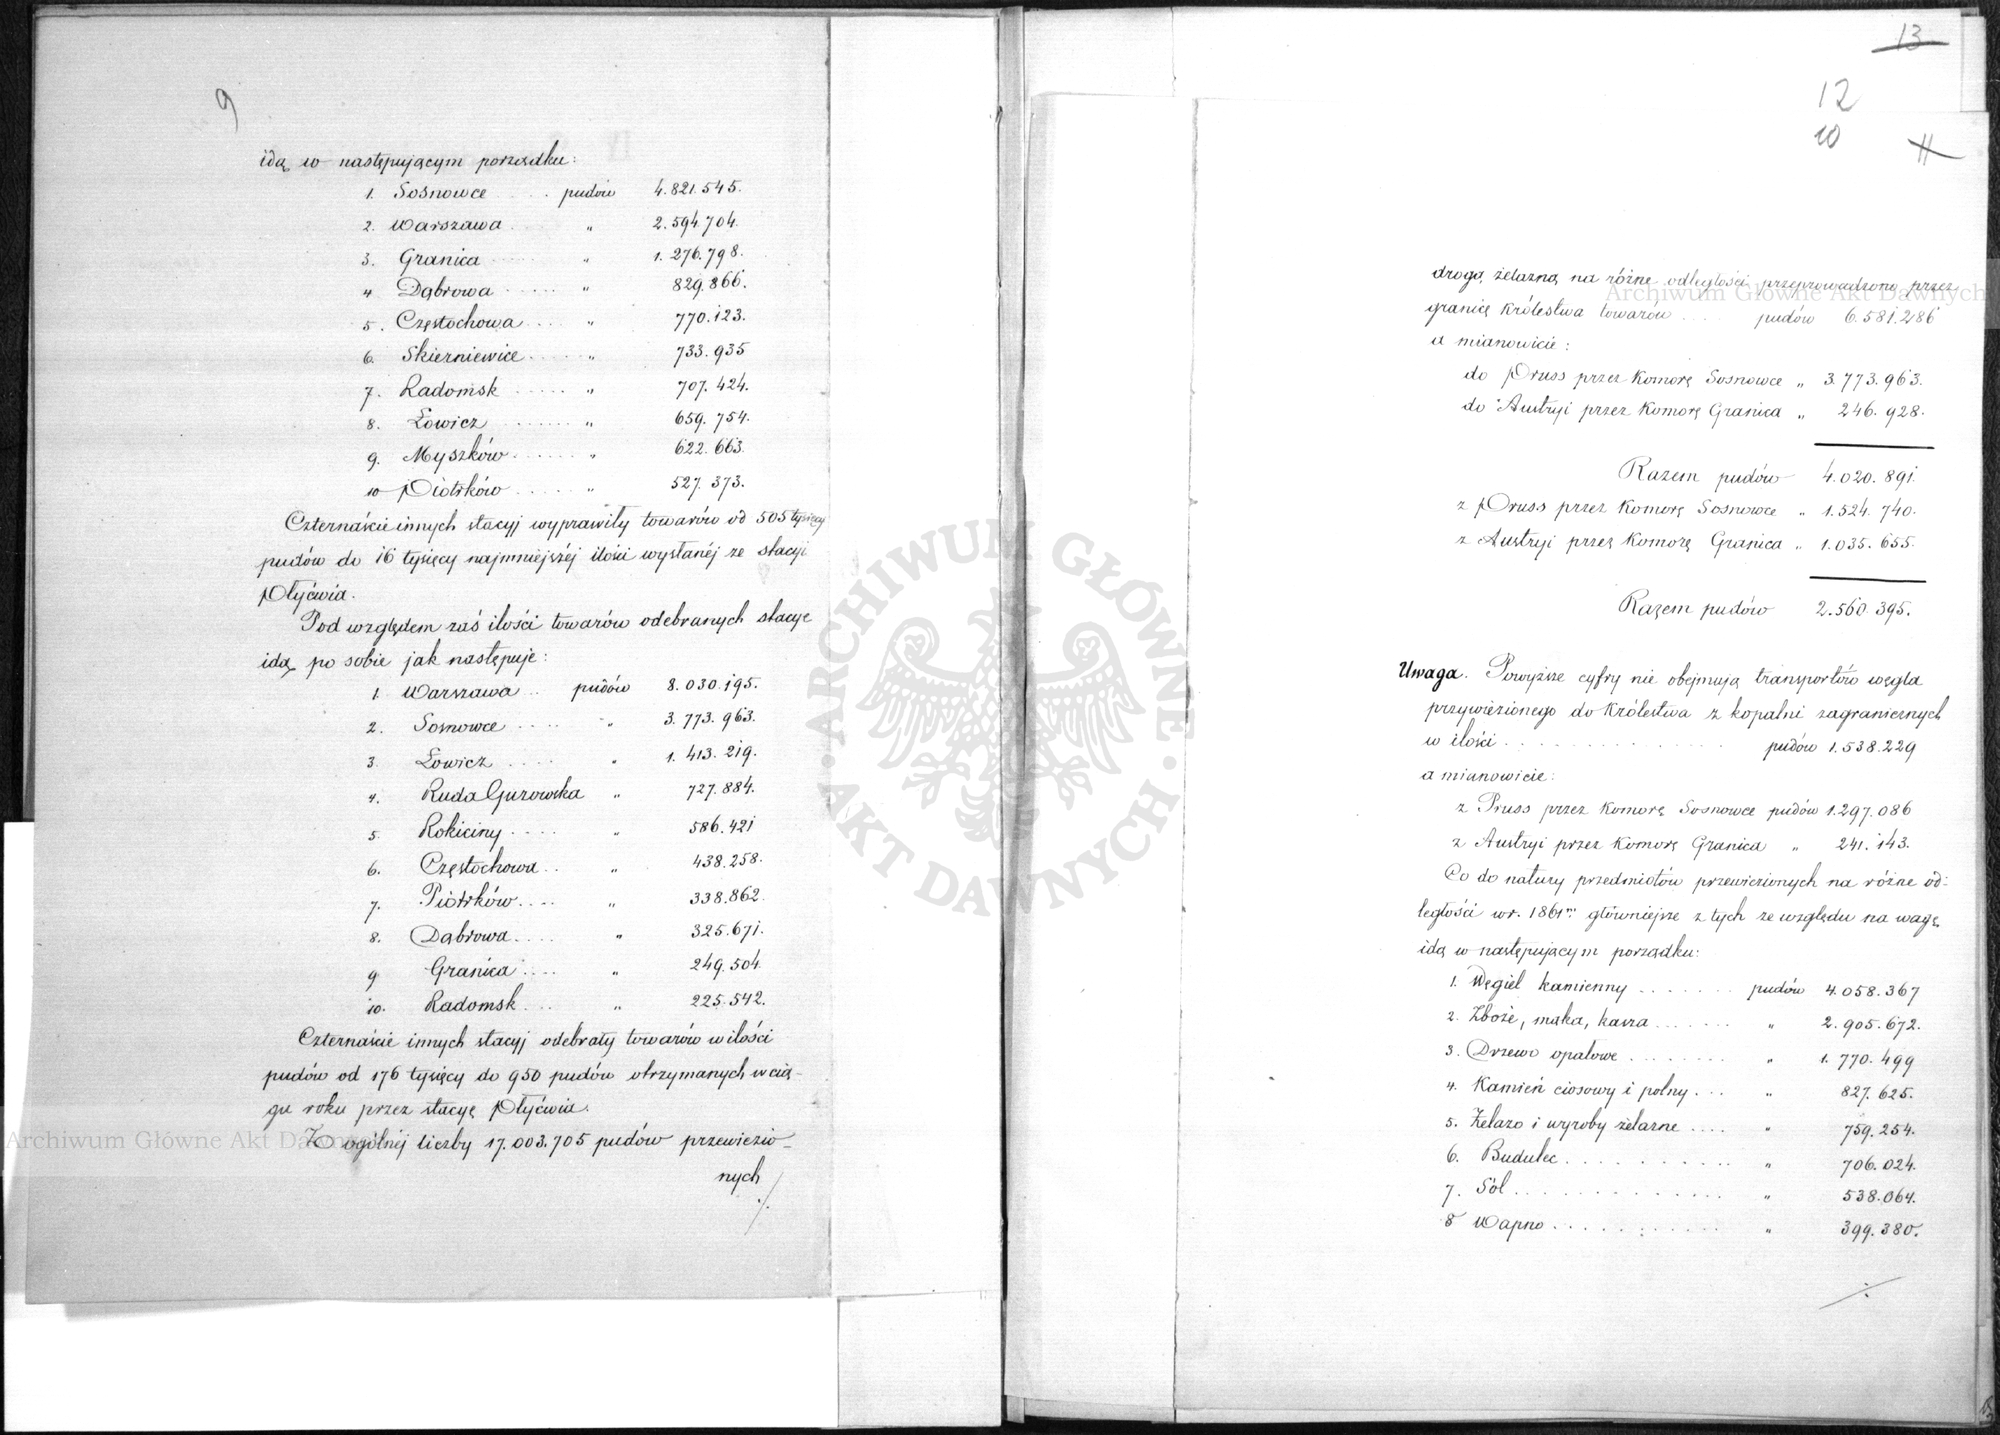 9
idą w następującym porządku:
1. Sosnowce . . . . pudów 4.821.545.
2. Warszawa . . . " 2.594.704.
3. Granica . . . . " 1.276.798.
4 Dąbrowa . . . . . " 829.866.
5. Częstochowa . . . . " 770.123.
6. Skierniewice . . . . . " 733.935
7. Radomsk . . . . . " 707.424.
8. Łowicz . . . . . . " 659.754.
9. Myszków . . . . . . " 622.663.
10 Piotrków . . . . . " 527.373.
Czternaście innych stacyj wyprawiły towarów od 505 tysięcy
pudów do 16 tysięcy najmniejszéj ilości wysłanéj ze stacyi
Płyćwia.
Pod względem zaś ilości towarów odebranych stacye
idą po sobie jak następuje:
1 Warszawa . . pudów 8.030.195.
2. Sosnowce . . . . " 3.773.963.
3. Łowicz . . . . " 1.413.219.
4. Ruda Guzowska " 727.884.
5. Rokiciny . . . . " 586.421
6. Częstochowa . . " 438.258.
7. Piotrków . . . . " 338.862.
8. Dąbrowa . . . . " 325.671.
9 Granica . . . . " 249.504.
10. Radomsk . . . " 225.542.
Czternaście innych stacyj odebrały towarów w ilości
pudów od 176 tysięcy do 950 pudów otrzymanych w cią-
gu roku przez stacyę Płyćwia.
Z ogólnéj liczby 17.003.705 pudów przewiezio-
nych
./.
13
12
10
11
drogą żelazną na różne odległości przeprowadzono przez
granicę Królestwa towarów . . . . pudów 6.581.286
a mianowicie:
do Pruss przez Komorę Sosnowce " 3.773.963.
do Austryi przez Komorę Granica " 246.928.
Razem pudów 4.020.891.
z Pruss przez Komorę Sosnowce " 1.524.740.
z Austryi przez Komorę Granica " 1.035.655.
Razem pudów 2.560.395.
Uwaga. Powyższe cyfry nie obejmują transportów węgla
przywiezionego do Królestwa z kopalni zagranicznych
w ilości . . . . . . . . . . . . . . . pudów 1.538.229
a mianowicie:
z Pruss przez Komorę Sosnowce pudów 1.297.086
z Austryi przez Komorę Granica " 241.143.
Co do natury przedmiotów przewiezionych na różne od-
ległości w r. 1861ym główniejsze z tych ze względu na wagę
idą w następującym porządku:
1. Węgiel kamienny . . . . . . . pudów 4.058.367
2. Zboże, mąka, kasza . . . . . . " 2.905.672.
3. Drzewo opałowe . . . . . . . . " 1.770.499
4. Kamień ciosowy i polny . . . " 827.625.
5. Żelazo i wyroby żelazne . . . . " 759.254.
6. Budulec . . . . . . . . . . . " 706.024.
7. Sól . . . . . . . . . . . . . " 538.064.
8 Wapno . . . . . . . . . . . " 399.380.
./.
Archiwum Główne Akt Dawnych
Archiwum Główne Akt Dawnych
ARCHIWUM GŁÓWNE · AKT DAWNYCH ·